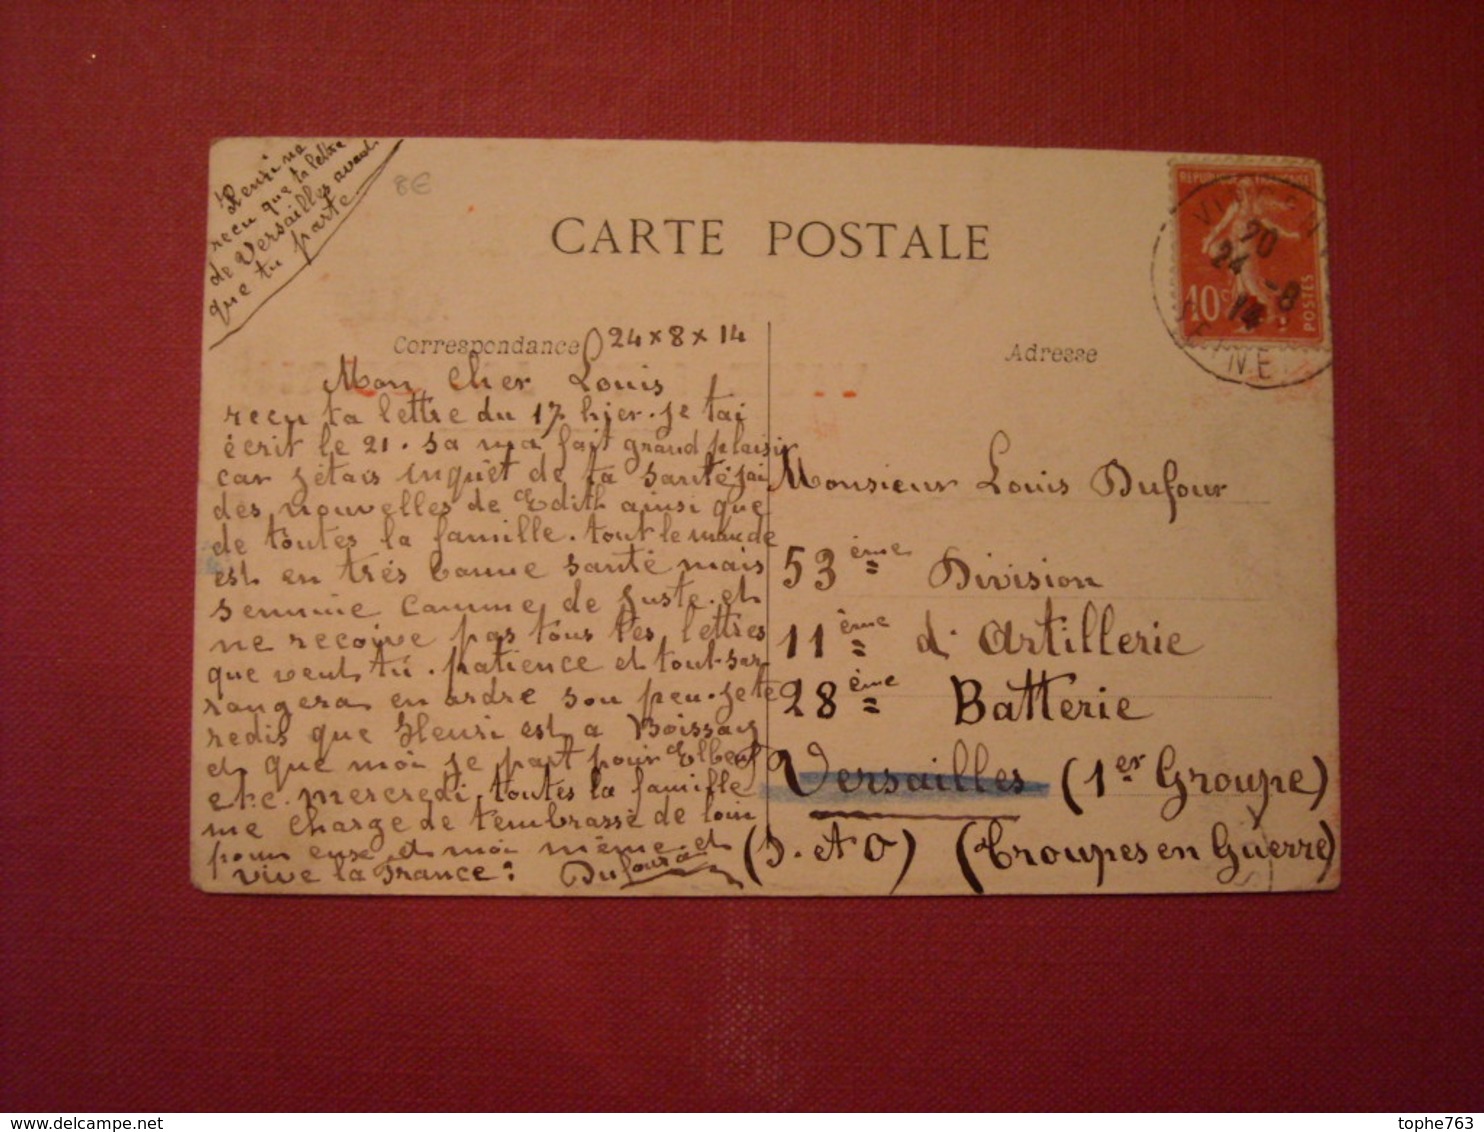 Henri na
recu que ta lettre
de Versailles avant
que tu parte
8€
CARTE POSTALE
REPUBLIQUE FRANCAISE
10c
POSTES
20
24 -8
14
SEINE
Correspondance
24 x 8 x 14
Adresse
Mon Cher Louis
recu ta lettre du 17 hier. je tai
écrit le 21. sa ma fait grand plaisir
car jetais inquiet de ta santé. jai
des nouvelles de Edith ainsi que
de toutes la famille. tout le monde
est en très bonne santé mais
comme de juste. et
ne recoive pas tous tes lettres
que veut tu. patience et tout sar-
rangera en ordre sou peu. je te
redis que Henri est a Boissay
et que moi je part pour Elbeuf
etc. mercredi. toutes la famille
me charge de tembrassé de loin
pour eux et moi même et
vive la France:
Dufour
Monsieur Louis Dufour
53 ème Division
11 ème d'Artillerie
28 ème Batterie
Versailles (1er Groupe)
(S. et O) (Troupes en Guerre)
tophe763